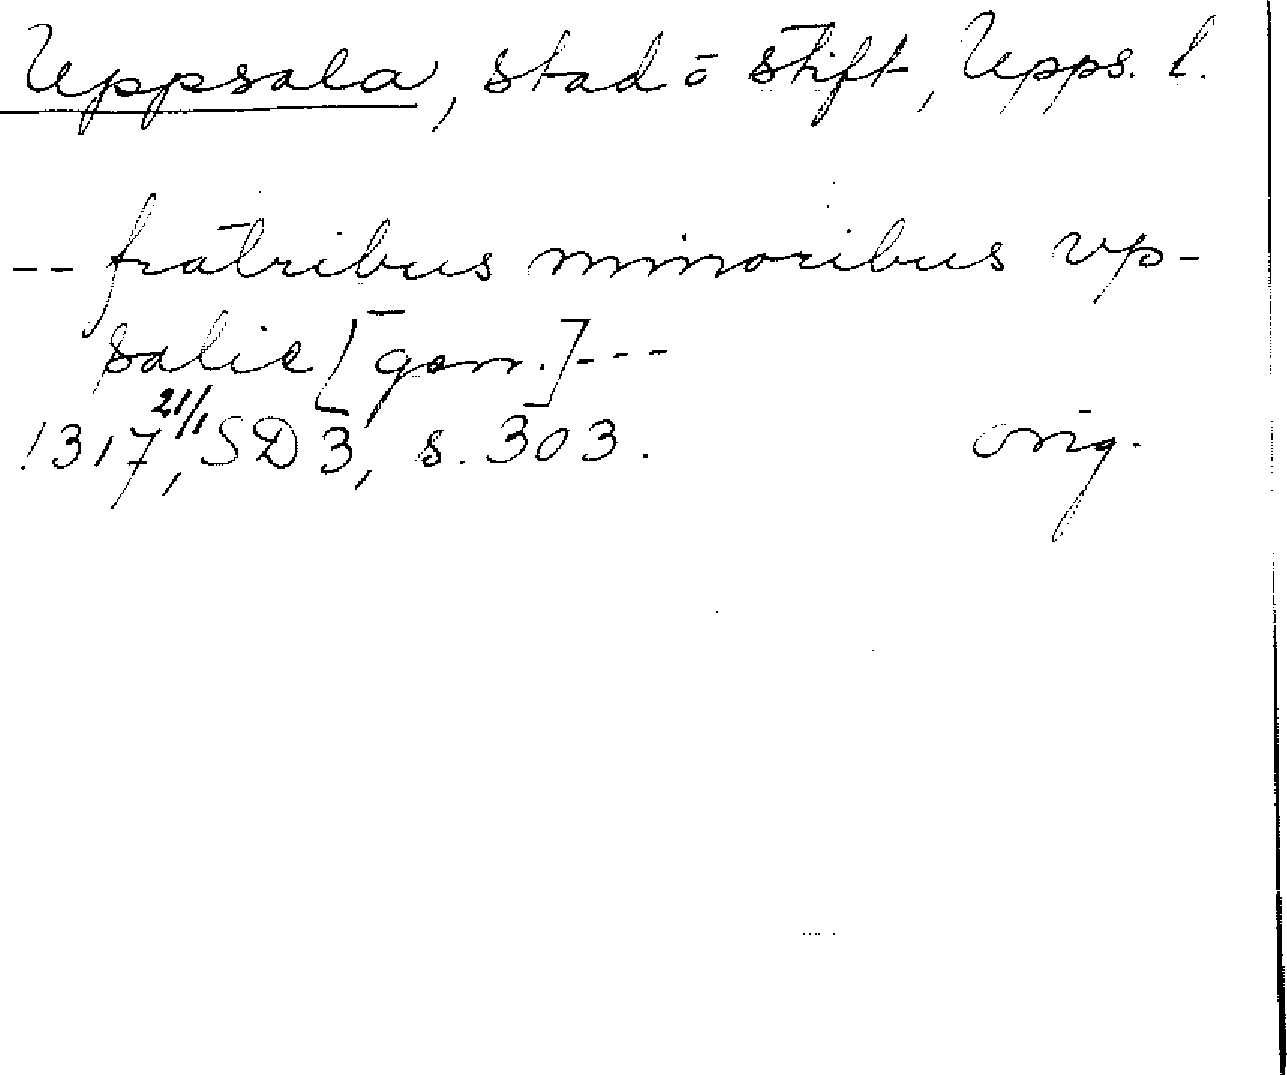 Uppsala, stad o stift, Upps. l.
-- fratribus minoribus vp-
salie [gen.]---
1317 21/1, SD 3, s. 303. orig.